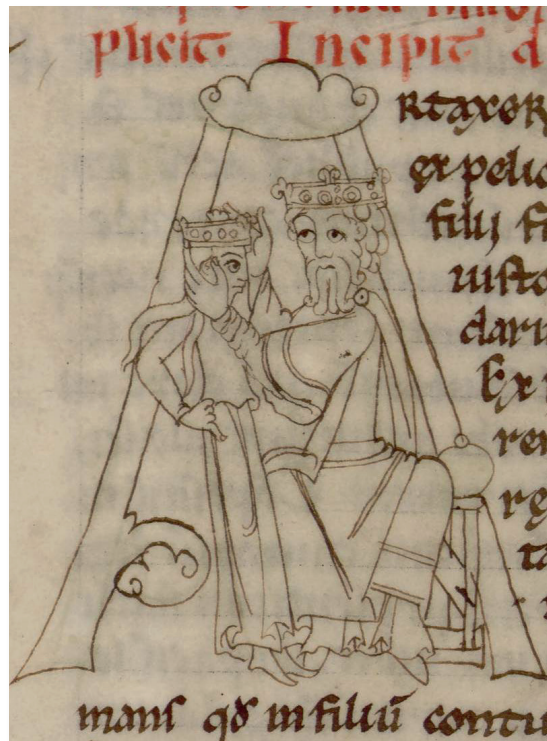 plicit Incipit d
rtaxor
ex pelic
filij fi
uisto
dariu
Ex
rem
rę
ta
mans qđ in filiū contu